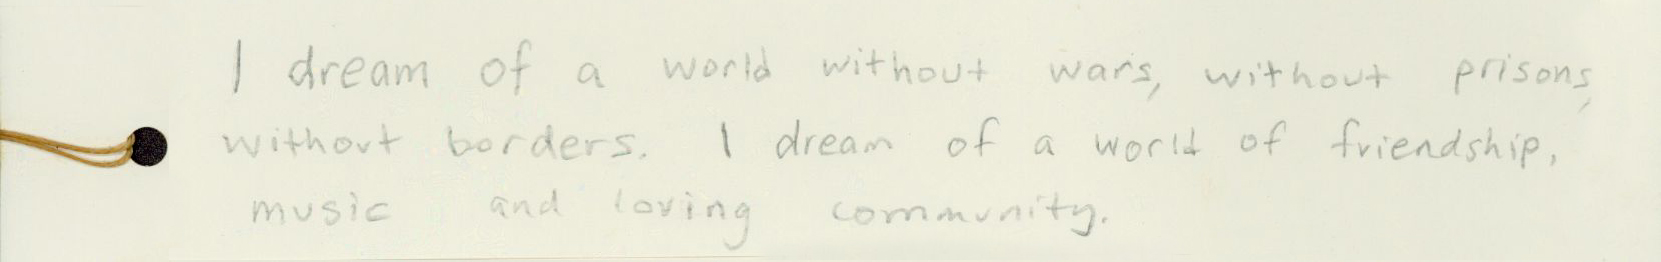 I dream of a world without wars, without prisons,
without borders. I dream of a world of friendship,
music and loving community.